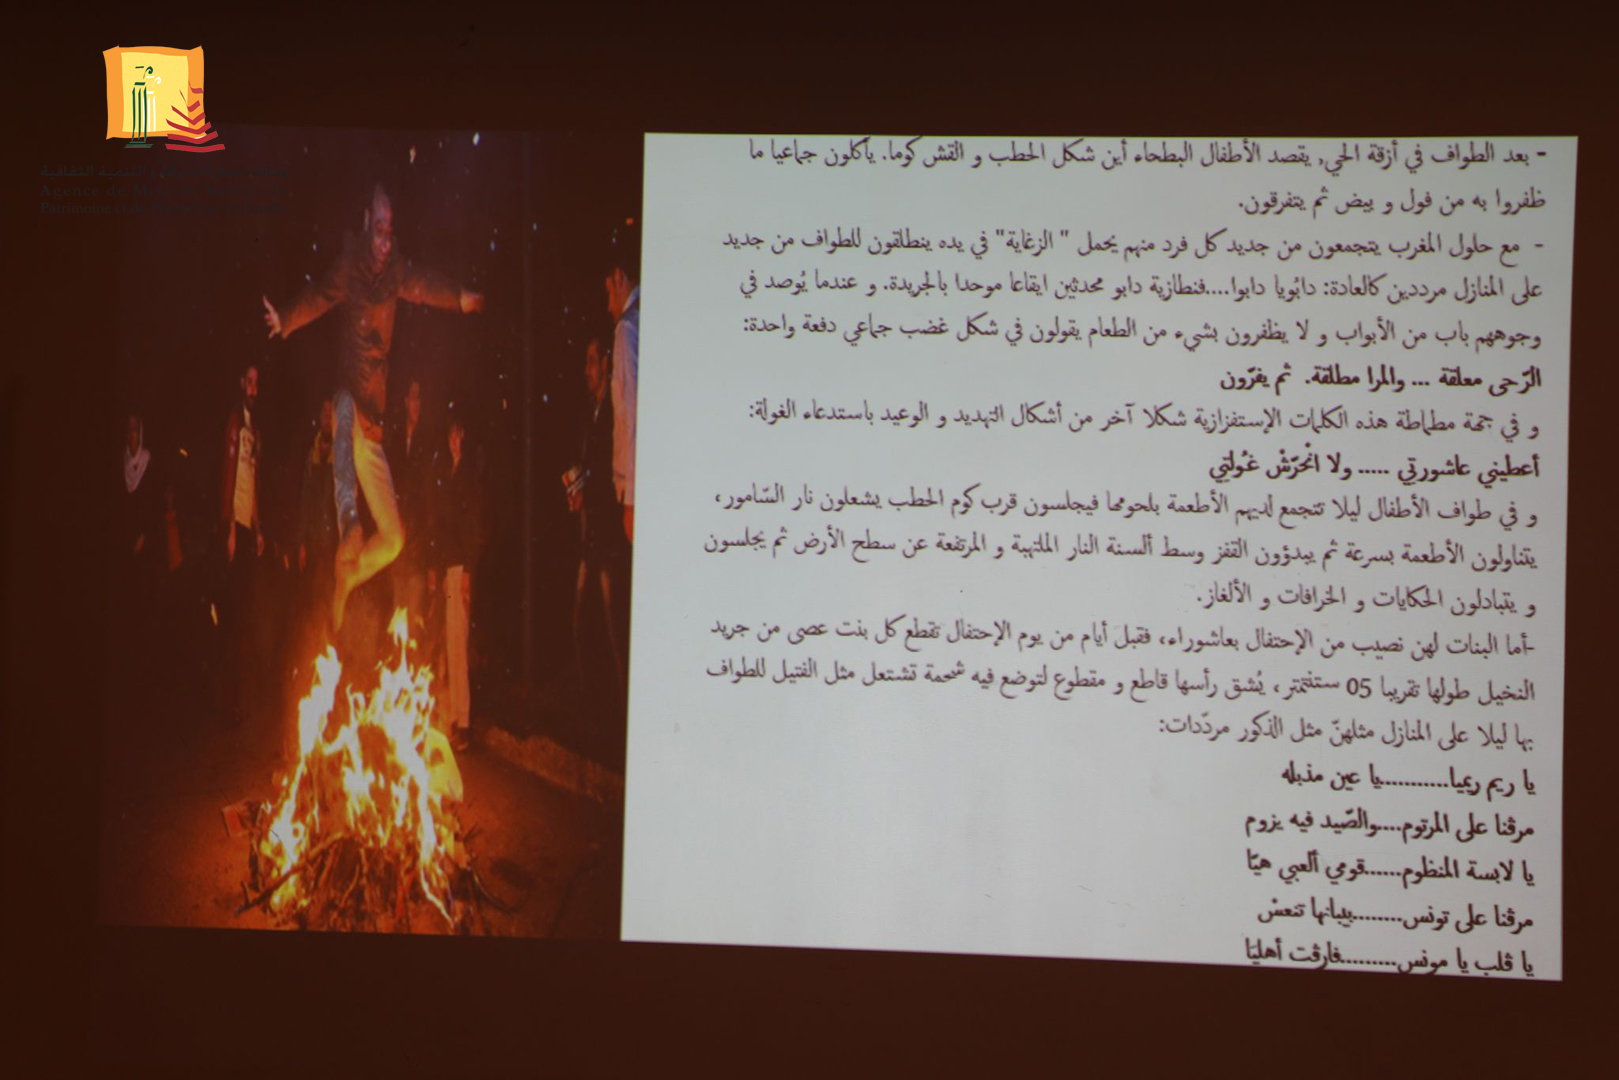 - بعد الطواف في أزقة الحي, يقصد الأطفال البطحاء أين شكل الحطب و القش كوما. يأكلون جماعيا ما
ظفروا به من فول و بيض ثم يتفرقون.
- مع حلول المغرب يتجمعون من جديد كل فرد منهم يحمل " الزغاية" في يده ينطلقون للطواف من جديد
على المنازل مرددين كالعادة: دابُويا دابوا....فنطازية دابو محدثين ايقاعا موحدا بالجريدة. و عندما يُوصد في
وجوههم باب من الأبواب و لا يظفرون بشيء من الطعام يقولون في شكل غضب جماعي دفعة واحدة:
الرّحى معلقة ... والمرا مطلقة. ثم يفرّون
و في جهة مطماطة هذه الكلمات الإستفزازية شكلا آخر من أشكال التهديد و الوعيد باستدعاء الغولة:
أعطيني عاشورتي ..... ولا انْحَرّشْ غُولتِي
و في طواف الأطفال ليلا تتجمع لديهم الأطعمة بلحومها فيجلسون قرب كوم الحطب يشعلون نار السّامور،
يتناولون الأطعمة بسرعة ثم يبدؤون القفز وسط ألسنة النار الملتهبة و المرتفعة عن سطح الأرض ثم يجلسون
و يتبادلون الحكايات و الخرافات و الألغاز.
-أما البنات لهن نصيب من الإحتفال بعاشوراء، فقبل أيام من يوم الإحتفال تقطع كل بنت عصى من جريد
النخيل طولها تقريبا 05 سنتمتر، يُشق رأسها قاطع و مقطوع لتوضع فيه شحمة تشتعل مثل الفتيل للطواف
بها ليلا على المنازل مثلهنّ مثل الذكور مردّدات:
يا ريم ريميا...........يا عين مذبله
مرڨنا على المرتوم....والصّيد فيه يزوم
يا لابسة المنظوم......قومي ألعبي هيّا
مرڨنا على تونس........بيبانها تنعسْ
يا ڨلب يا مونس.........فارڨت أهليّا